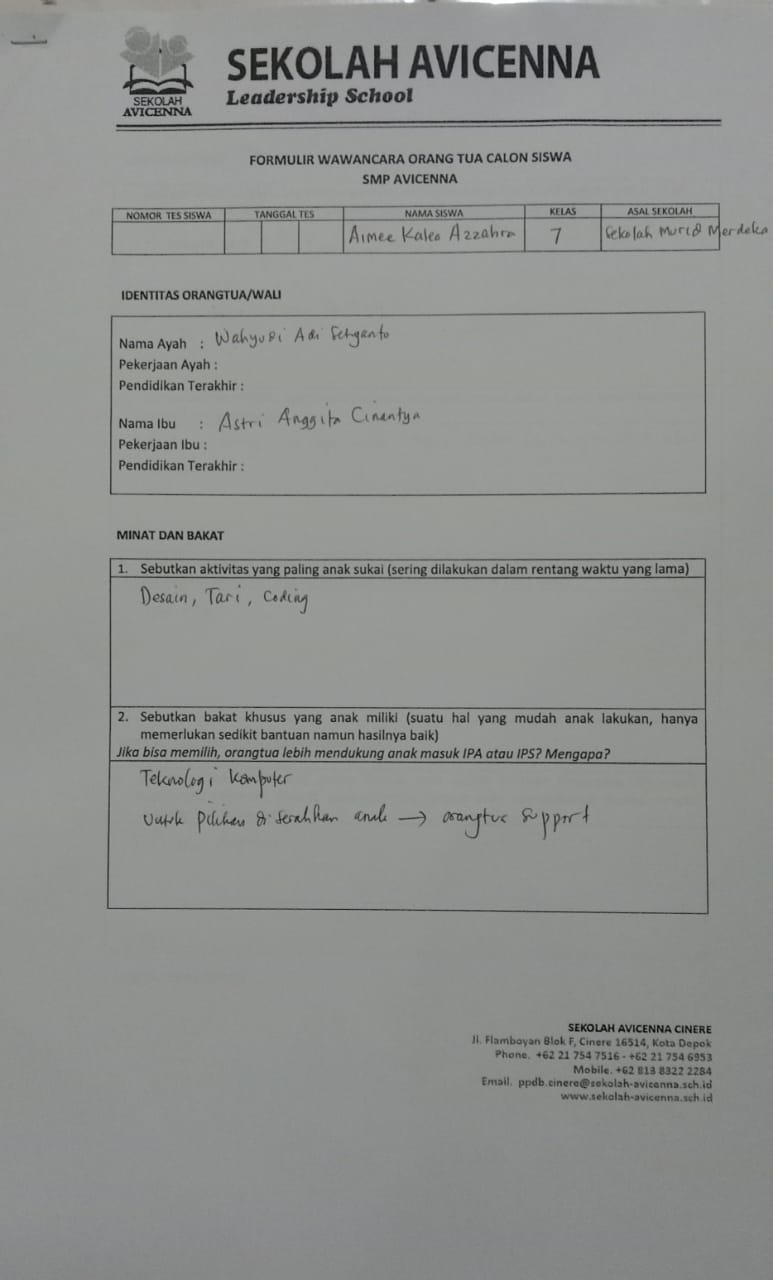 SEKOLAH AVICENNA
Leadership School
SEKOLAH
AVICENNA
FORMULIR WAWANCARA ORANG TUA CALON SISWA
SMP AVICENNA
NOMOR TES SISWA TANGGAL TES NAMA SISWA KELAS ASAL SEKOLAH
Aimee Kaleo Azzahra 7 Sekolah Murid Merdeka
IDENTITAS ORANGTUA/WALI
Nama Ayah : Wahyudi Adi Setyanto
Pekerjaan Ayah :
Pendidikan Terakhir :
Nama Ibu : Astri Anggita Cinantya
Pekerjaan Ibu :
Pendidikan Terakhir :
MINAT DAN BAKAT
1. Sebutkan aktivitas yang paling anak sukai (sering dilakukan dalam rentang waktu yang lama)
Desain, Tari, Coding
2. Sebutkan bakat khusus yang anak miliki (suatu hal yang mudah anak lakukan, hanya
memerlukan sedikit bantuan namun hasilnya baik)
Jika bisa memilih, orangtua lebih mendukung anak masuk IPA atau IPS? Mengapa?
Teknologi Komputer
Untuk pilihan diserahkan anak → orangtua support
SEKOLAH AVICENNA CINERE
Jl. Flamboyan Blok F, Cinere 16514, Kota Depok
Phone. +62 21 754 7516 - +62 21 754 6953
Mobile. +62 813 8322 2284
Email. ppdb.cinere@sekolah-avicenna.sch.id
www.sekolah-avicenna.sch.id